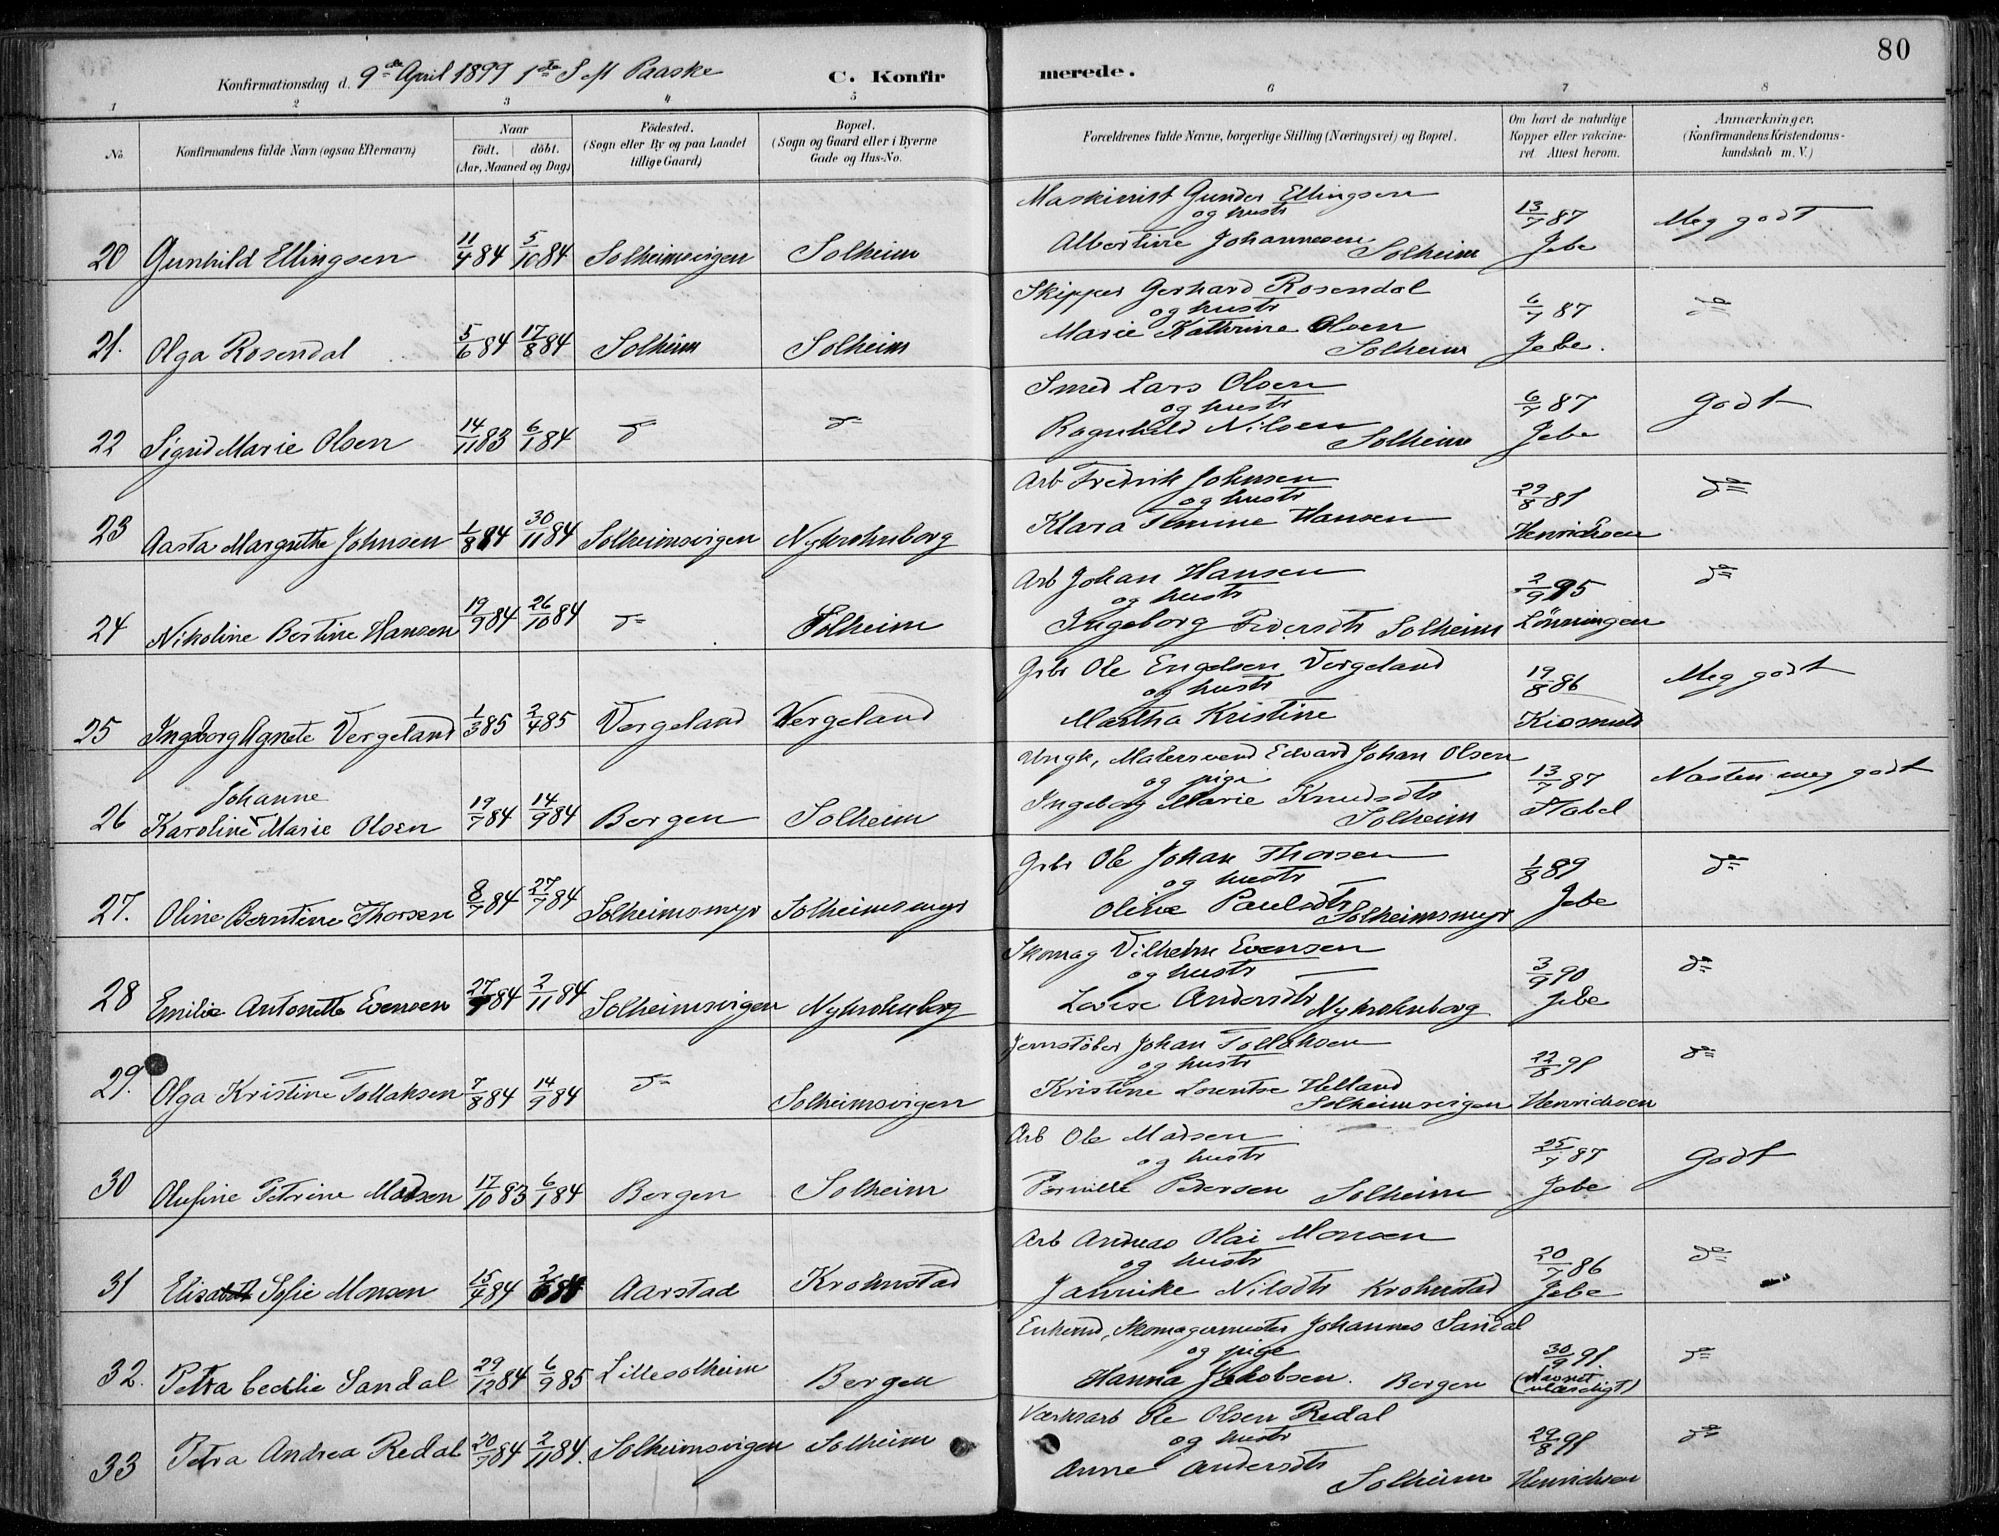 80
Konfirmationsdag d. 9de April 1899 1ste S. e. Paaske C. Konfirmerede.
1 2 3 4 5 6 7 8
No. Konfirmandens fulde Navn (ogsaa Efternavn) Naar födt. döbt. (Aar, Maaned og Dag) Födested. (Sogn eller By og paa Landet tillige Gaard) Bopæl. (Sogn og Gaard eller i Byerne Gade og Hus-No. Forældrenes fulde Navne, borgerlige Stilling (Næringsvei) og Bopæl. Om havt de naturlige Kopper eller vakcineret. Attest herom. Anmærkninger. (Konfirmandens Kristendomskundskab m. V.)
Maskinist Gunder Ellingsen
og hustr 13/7 87 Meg godt
20 Gunhild Ellingsen 11/4 84 5/10 84 Solheimsvigen Solheim Albertine Johannesen Solheim Jebe
Skipper Gerhard Rosendal
og hustr 6/7 87 do
21. Olga Rosendal 5/6 84 17/8 84 Solheim Solheim Marie Kathrine Olsen Solheim Jebe.
Smed Lars Olsen
og hustr 6/7 87 Godt
22 Sigrid Marie Olsen 14/11 83 6/1 84 do do Ragnhild Nilsen Solheim Jebe
Arb Fredrik Johnsen
og hustr 29/8 do
23 Aasta Margrethe Johnsen 1/8 84 30/11 84 Solheimsvigen Nykrohnborg Klara Hansen Henrichsen
Arb Johan Hansen
og hustr 2/9 95 do
24 Nikoline Bertine Hansen 19/9 84 26/10 84 do Solheim Ingeborg Pedersdtr Solheim Lönningen
Gbr Ole Engelsen Vergeland
og hustr 19/8 86 Meg godt
25 Ingeborg Agnete Vergeland 1/3 85 2/4 85 Vergeland Vergeland Martha Kristine
Ungk, Malersvend Edvard Johan Olsen
Johanne og pige 13/7 87 Næsten meg godt
26 Karoline Marie Olsen 19/7 84 14/9 84 Bergen Solheim Ingeborg Marie Knudsdtr Solheim Stabel
Gbr Ole Johan Thorsen
og hustr 1/8 89 do
27. Oline Berntine Thorsen 8/7 84 27/7 84 Solheimsmyr Solheimsmyr Oline Paulsdtr Solheimsmyr Jebe
Skomag Vilhelm Evensen
og hustr 3/9 90 do
28 Emilie Antonette Evensen 27/9 84 2/11 84 Solheimsvigen Nykrohnborg Lovise Andersdtr Nykrohnborg Jebe
Jernstøber Johan Tollaksen
og hustr 22/8 do
29. Olga Kristine Tollaksen 7/8 84 14/9 84 do Solheimsvigen Kristine Lorentse Helland Solheimsvigen Henrichsen
Arb Ole Madsen
og hustr 25/7 87 Godt
30 Olufine Petrine Madsen 17/10 83 6/1 84 Bergen Solheim Pernille Pedersen Solheim Jebe
Arb Andreas Olai Monsen
og hustr 20/7 86 do
31 Elisabeth Sofie Monsen 15/4 84 Aarstad Krohnstad Jannike Nilsdtr Krohnstad Jebe
Enkemd, Skomagermester Johannes Sandal
og pige 30/9 do
32. Petra Cecilie Sandal 29/12 84 6/9 85 Lillesolheim Bergen Hanna Jakobsen. Bergen (Navnet ulæseligt)
Værksarb Ole Olsen Redal
og hustr 29/8 do
33 Petra Andrea Redal 20/7 84 2/11 84. Solheimsvigen Solheim Anne Andersdtr Solheim Henrichsen